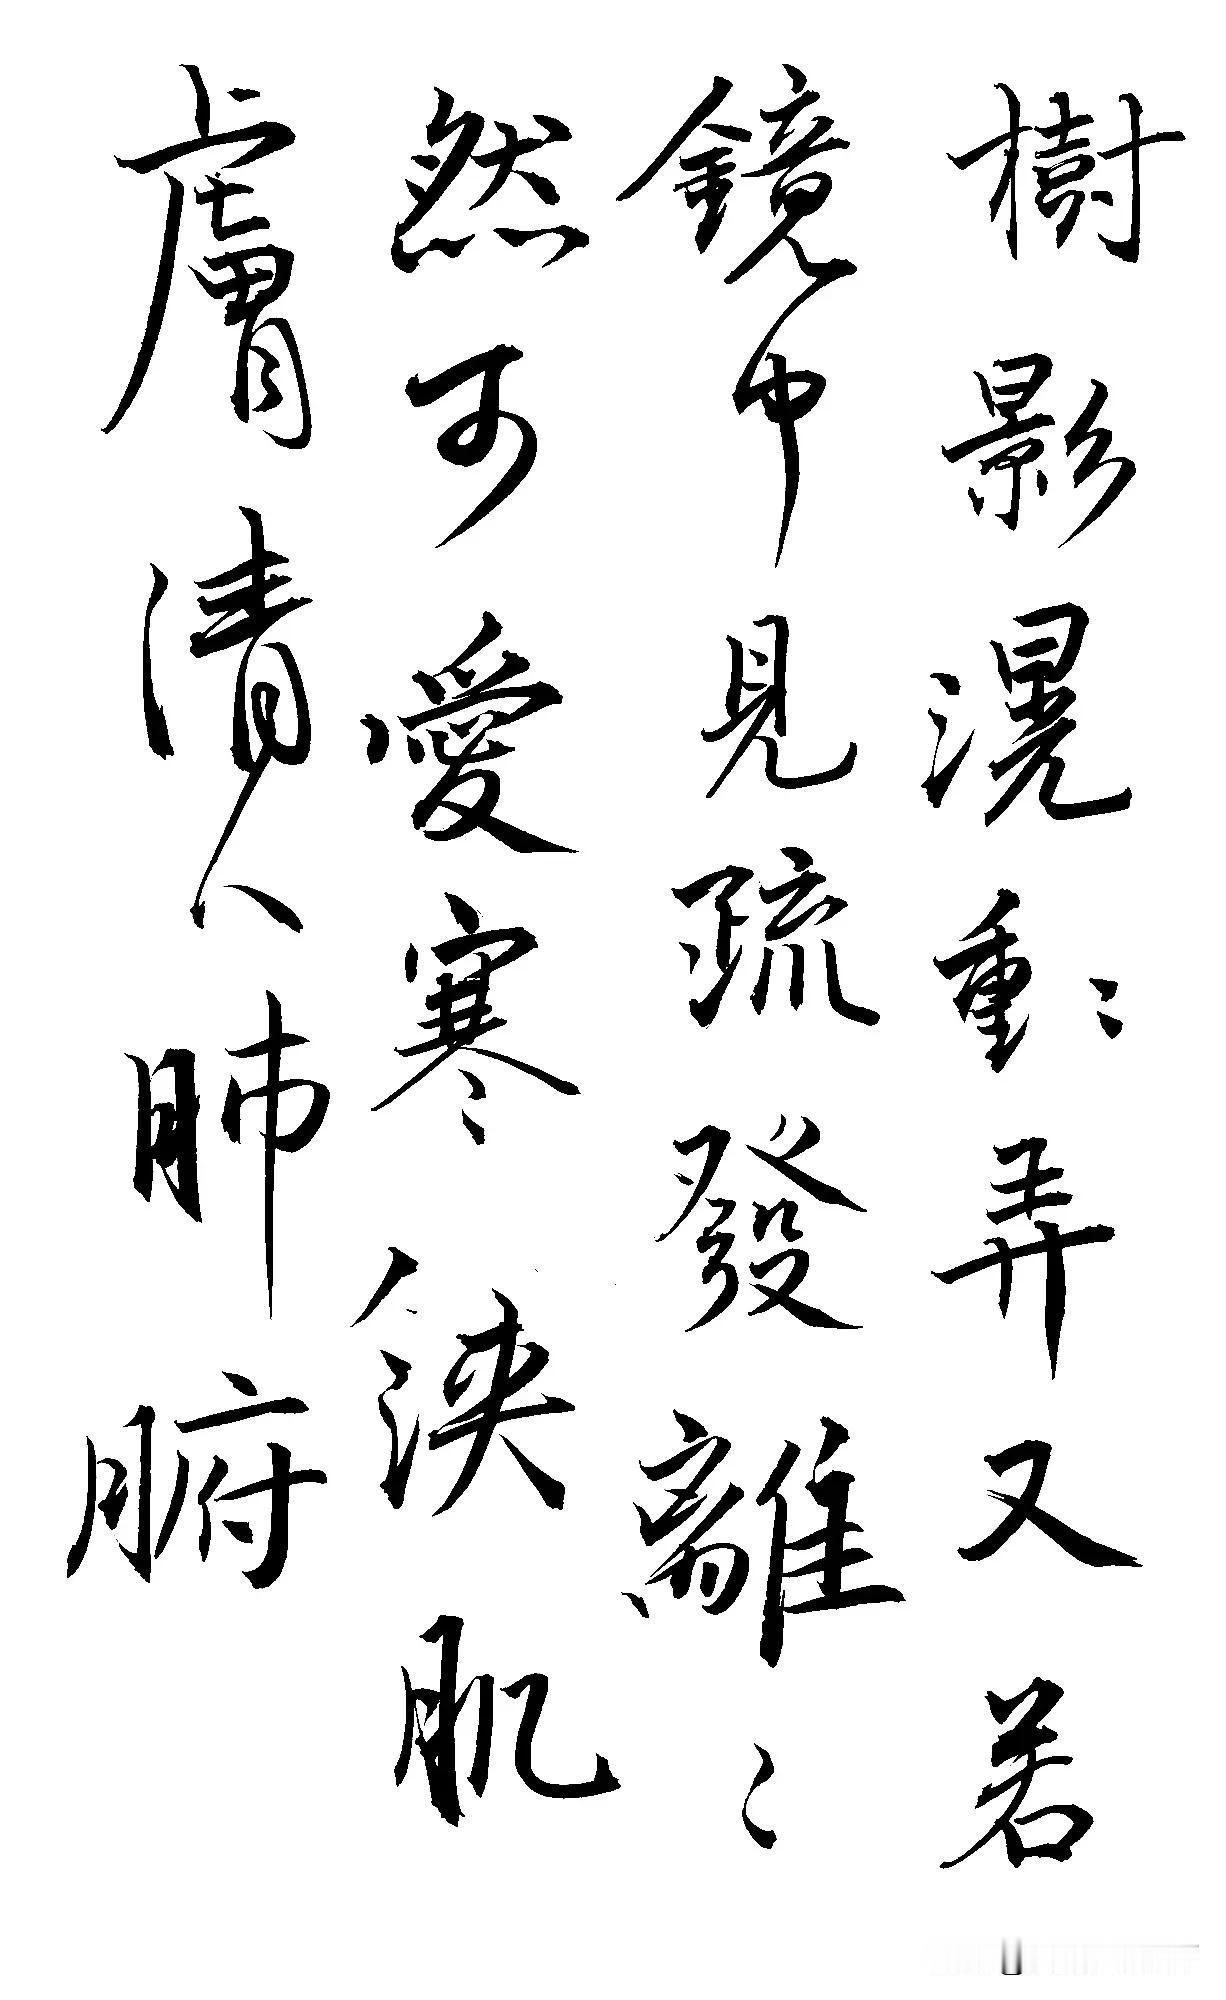 樹影滉重〻弄又若
鏡中見疏發離〻
然可愛寒浹肌
膚清人肺腑